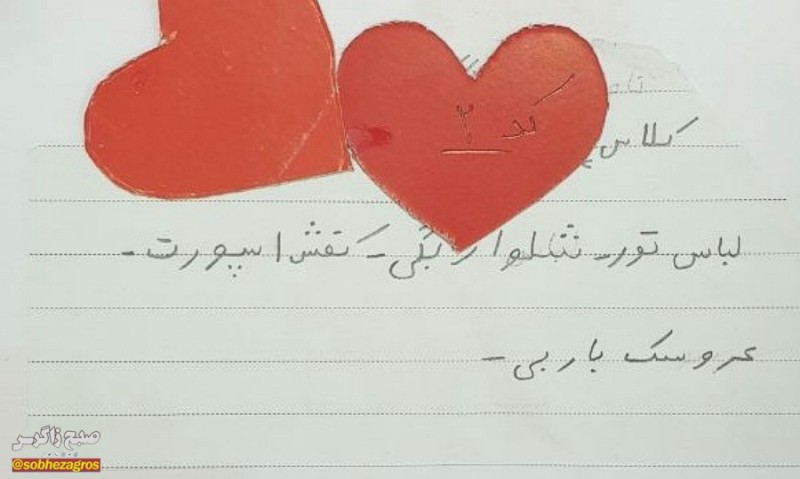 کد ۲
کلاس
لباس تور ـ شلوار بگی ـ کفش اسپورت ـ
عروسک باربی ـ
صبح زاگرس
@sobhezagros